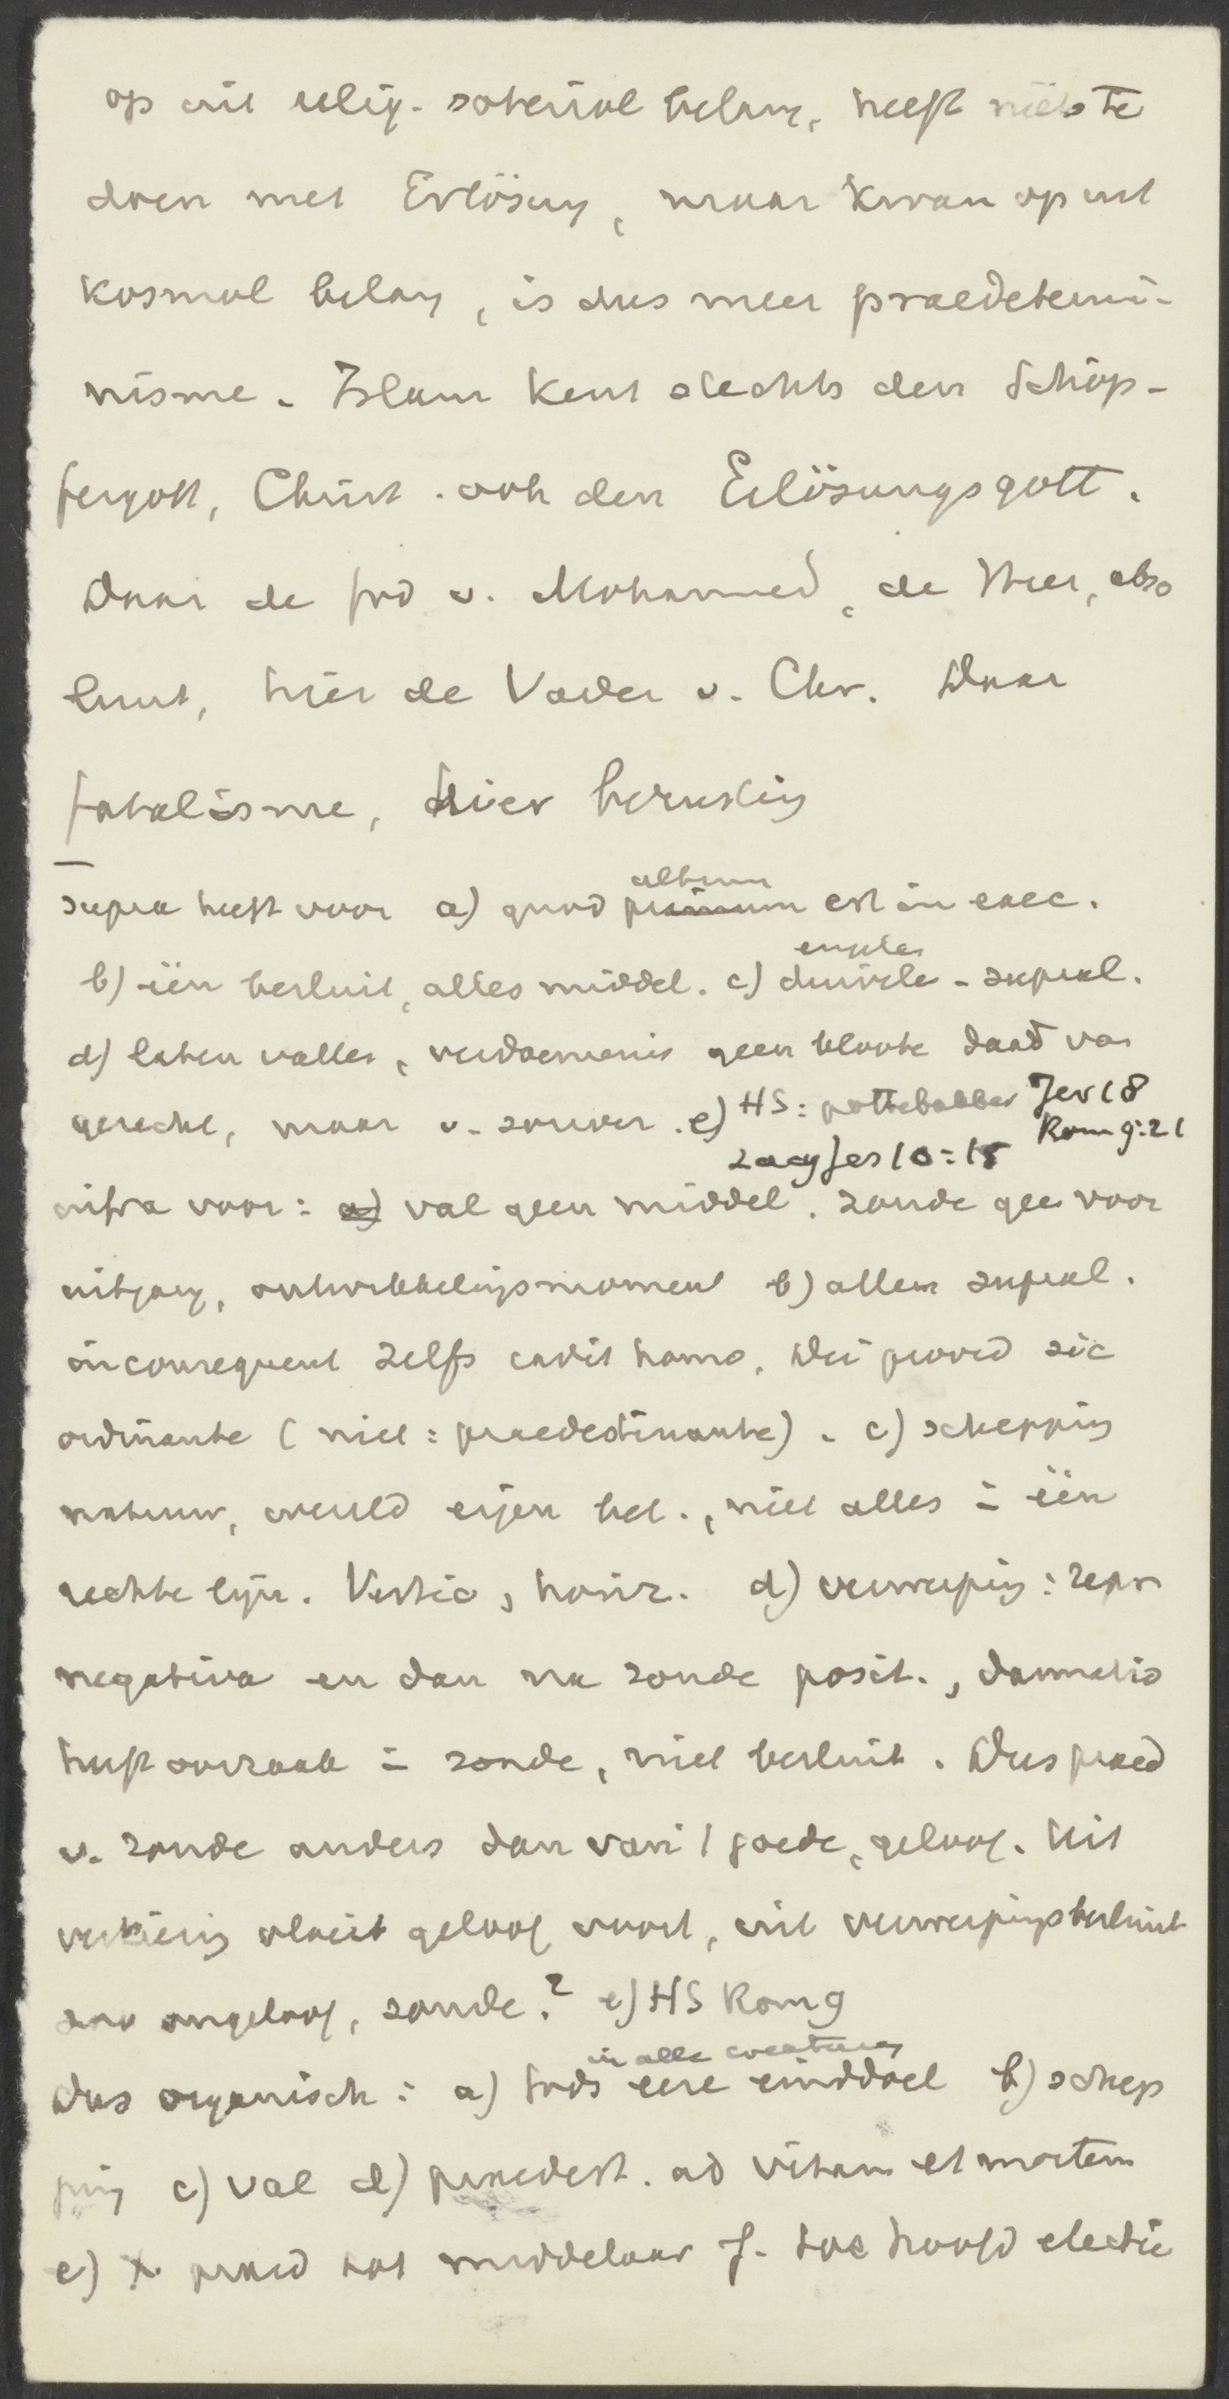 op uit relig. soteriol belang, heeft niets te
doen met Erlösung, maar kwam op uit
kosmol belang, is dus meer praedetermi-
nisme. Islam kent slechts den Schöp-
fergott, Christ. ook den Erlösungsgott.
Daar de God v. Mohammed, de Heer, abso
luut, hier de Vader v. Chr. Daar
fatalisme, hier berusting
Supra heeft voor a) quod primum ultimum est in exec.
b) één besluit, alles middel. c) duivele engelen - supral.
d) laten vallen, verdoemenis geen bloote daad van
gerecht, maar v. souver. e) HS: pottebakker Jer 18
Rom 9:21
zaag Jes 10:15
infra voor: a) val geen middel. zonde geen voor
uitgang, ontwikkelingsmoment b) allen supral.
inconsequent zelfs cadit homo, Dei provid sic
ordinante (niet: praedestinante). c) schepping
natuur, wereld eigen bet., niet alles in één
rechte lijn. Vertic, horiz. d) verwerping: repr
negativa en dan na zonde posit., damnatio
heeft oorzaak in zonde, niet besluit. Dus praed
v. zonde anders dan van 't goede, geloof. Uit
verkiezing vloeit geloof voort, uit verwerpingsbesluit
ongeloof, zonde? e) HS Rom 9
Dus organisch: a) Gods eere in alle creaturen einddoel b) schep
ping c) val d) praedest. ad vitam et mortem
e) X praed tot middelaar f. tot hoofd electie